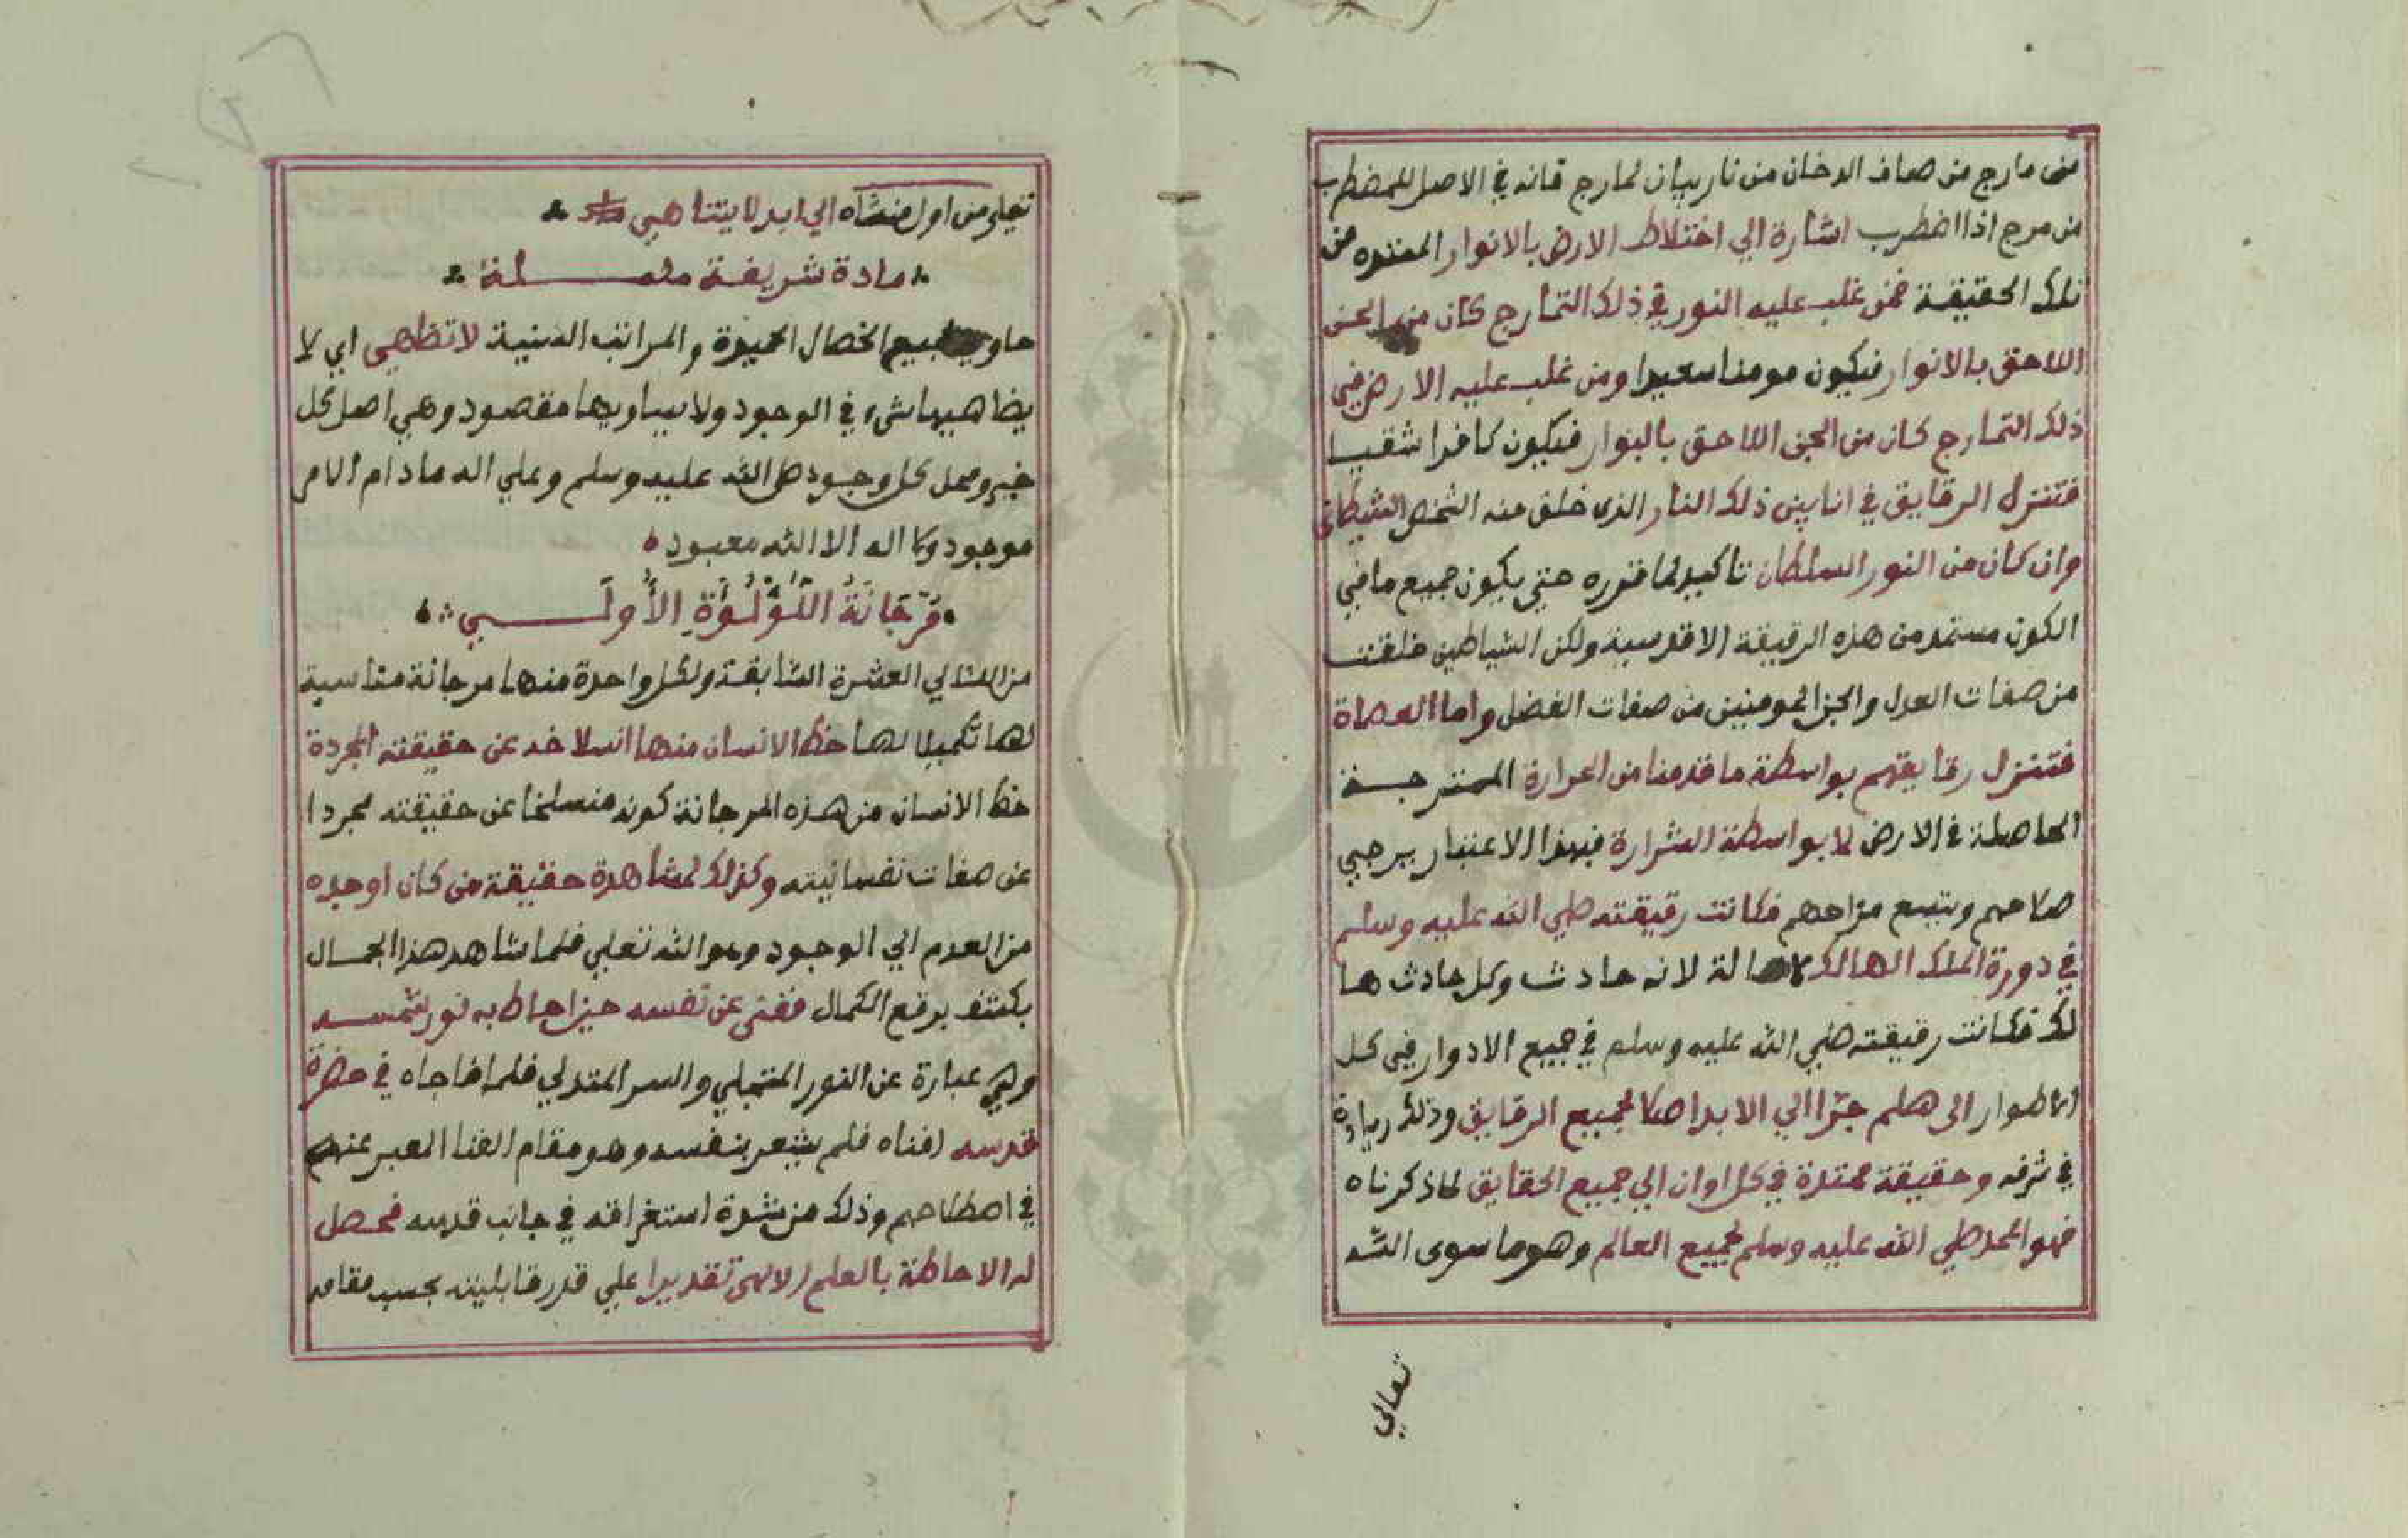 من مارج من صاف الدخان من نار بيان لمارج فانه في الاصل للمضطرب
من مرج اذا اضطرب اشارة الي اختلاط الارض بالانوار الممتده من
تلك الحقيقة فمن غلب عليه النور في ذلك التمارج كان من الجن
اللاحق بالانوار فيكون مومنا سعيدا ومن غلب عليه الارض في
ذلك التمارج كان من الجن اللاحق بالبوار فيكون كافرا شقيا
فتنزل الرقايق في انابيق ذلك النار الذي خلق منه الشخص الشيطاني
وان كان من النور السلطان تاكيد لما قرره حتي يكون جميع ما في
الكون مستمد من هذه الرقيقة الاقدسية ولكن الشياطين خلقت
من صفات العدل والجن المومنين من صفات الفضل واما العصاة
فتنزل رقايقهم بواسطة ما قدمنا من الحرارة الممتزجة
الحاصلة في الارض لا بواسطة الشرارة فبهذا الاعتبار يرجي
صلاحهم ويتسع مراحهم فكانت رقيقته صلي الله عليه وسلم
في دورة الملك الهالك لا لانه حادث وكل حادث ها
لك فكانت رقيقته صلي الله عليه وسلم في جميع الادوار في كل
الاطوار الى هلم جرا الي الابد اصلا لجميع الرقايق وذلك زيادة
في شرفه وحقيقة ممتدة في كل اوان الي جميع الحقايق لما ذكرناه
فهو الممد صلي الله عليه وسلم لجميع العالم وهو ما سوى الله
تعالي
تعلي من اول منشاه الي ابد لا يتناهي
مادة شريفة
حاوية لجميع الخصال الحميدة والمراتب السنية لا تظاهي اي لا
يضاهيها شيء في الوجود ولا يساويها مقصود وهي اصل كل
خير ومحل كل وجود صلى الله عليه وسلم وعلي اله ما دام الامر
موجود ولا اله الا الله معبود
مرجانة اللؤلؤة الأولي
من اللئالي العشرة السابقة ولكل واحدة منها مرجانة مناسبة
لها تكميلا لها حظ الانسان منها انسلاخه عن حقيقته المجردة
حظ الانسان من هذه المرجانة كونه منسلخا عن حقيقته مجردا
عن صفات نفسانيته وكذلك لمشاهدة حقيقة من كان اوجده
من العدم الي الوجود وهو الله تعلي فلما شاهد هذا الجمال
بكشف برقع الكمال ففنى عن نفسه حين احاط به نور شمسه
وهي عبارة عن النور المتجلي والسر المتدلي فلما فاجاه في حضرة
قدسه افناه فلم يشعر بنفسه وهو مقام الفنا المعبر عنه
في اصطلاحهم وذلك من شدة استغراقه في جانب قدسه فحصل
له الاحاطة بالعلم الالهى تقديرا علي قدر قابليته بحسب مقامه